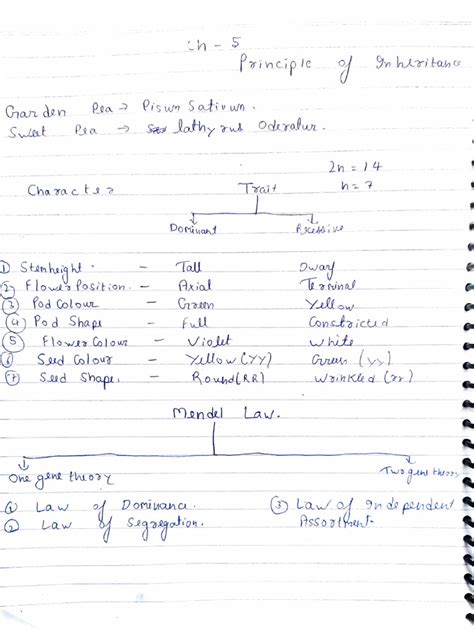 Ch - 5
Principle of Inheritance
Garden Pea → Pisum Sativum.
Sweet Pea → lathyrus Oderatur.
2n = 14
Character Trait n = 7
Dominant Recessive
① Stemheight. - Tall Dwarf
② Flower Position. - Axial Terminal
③ Pod Colour - Green Yellow
④ Pod Shape - Full Constricted
⑤ Flower Colour - Violet White
⑥ Seed Colour - Yellow (YY) Green (yy)
⑦ Seed Shape. - Round (RR) Wrinkled (rr)
Mendel Law.
One gene theory Two gene theory
① Law of Dominance. ③ Law of Independent
② Law of Segregation. Assortment.